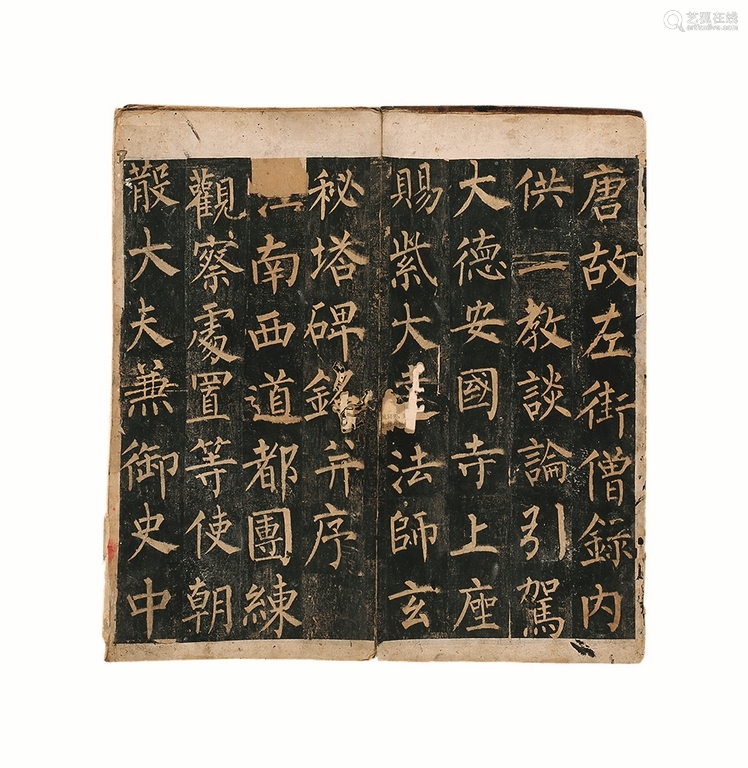 唐故左街僧錄内
供三教談論引駕
大德安國寺上座
賜紫大達法師玄
秘塔碑銘并序
江南西道都團練
觀察處置等使朝
散大夫兼御史中
艺狐在线
artfoxlive.com